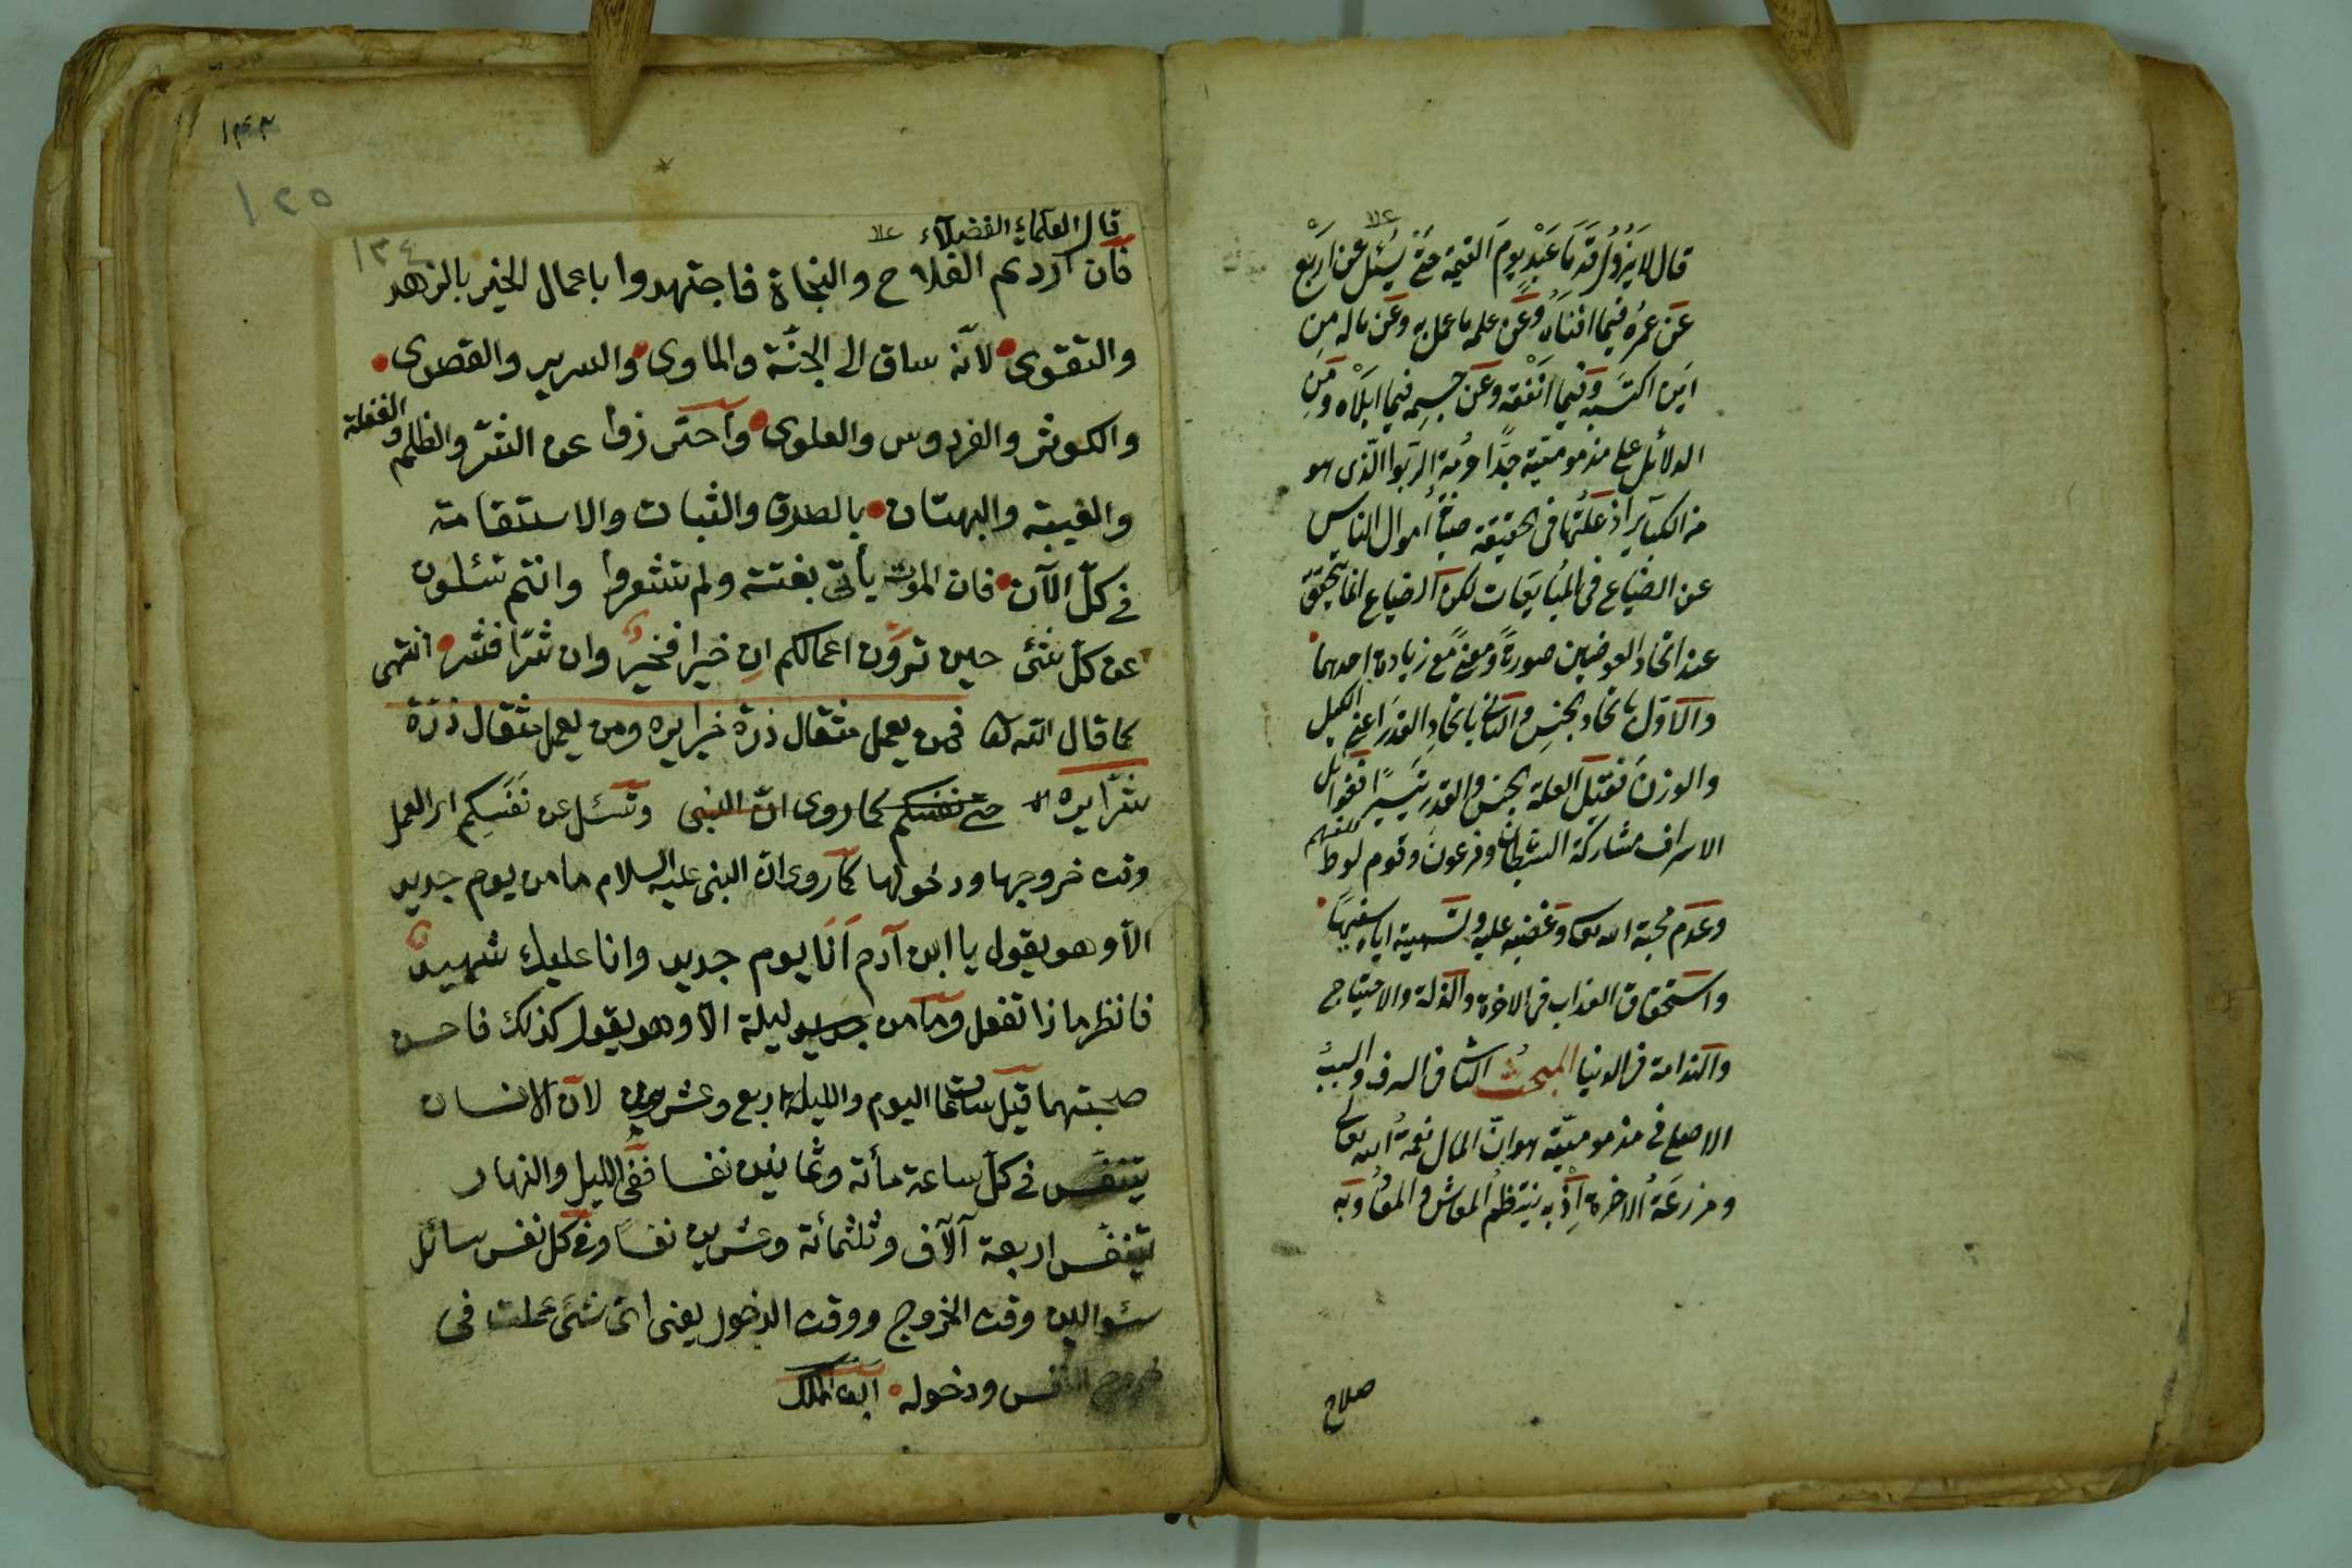 قال لا يَزُولُ قَدَمَا عَبْدٍ يومَ القيمة حتى يُسْئل عن اَرْبَع
عَن عمره فيما افناه وعَن علمه ما عمل به وعن ماله مِن
اَين اكتَسبه وَفيما اَنفقه وعن جسمه فيما ابلاه ومن
الدلائل على مذموميّته جدًّا حُرمة الربوا الّذى هو
من الكبآئر اذ علّتها فى الحقيقة صيانة اموال الناس
عن الضياع فى المُبايَعات لكن الضياع انما يتحقّق
عند اتحاد العوضين صورةً ومعنًى مع زيادة احدهما
والاوّل باتحاد الجنسِ والثانى باتحادِ القدَر اعنى الكيل
والوزن فقيل العلة الجنس والقدر تيسيرًا
الاسراف مشاركة الشيطان وفرعون وقوم لوط
وعدم محبة الله تعا وغضبه عليه وتسمية اياه سفيهًا
واستحقاق العذاب فى الاخرة والذلة والاحتياج
والندامة فى الدنيا المبحث الثانى السرف والسبب
الاصلى فى مذموميّته هو انّ المال نعمةُ الله تعالى
ومزرعَةُ الاخرة اِذْ به ينتظمُ المعاش والمعاد وبه
صلاح
١٣٤
قال العلماء الفضلاء
فان اردتم الفلاح والنجاة فاجتهدوا باعمال الخير بالزهد
والتقوى لانّه ساق الى الجنّة والماوى والسرير والقصوى
والكوثر والفردوس والعلوى واحترزوا عن الشرّ والظلم والغفلة
والغيبة والبهتان بالصدق والثبات والاستقامة
فى كلّ الآن فان الموت يأتى بغتة ولم تشعروا وانتم تسئلون
عن كلّ شئ حين تروَن اعمالكم ان خيرا فخير وان شرّا فشر انتهى
كما قال الله تعا فمن يعمل مثقال ذرة خيرا يره ومن يعمل مثقال ذرّة
شرّا يره حتى نفسكم كما روى انّ النبى وتسئل عن نَفَسِكم
وقت خروجها ودخولها كما روى انّ النبى عليه السلام ما من يوم جديد
الاّ وهو يقول يا ابن آدم اَنَا يوم جديد وانا عليك شهيد
فانظر ماذا تفعل وما من جديد ليلة الاّ وهو يقول كذلك فاحسن
صحبتهما قيل ساعتها اليوم والليلة اربع وعشرون لانّ الانسان
يتنفّس فى كلّ ساعة مأئة وثمانين نفسا ففى الليل والنهار
يتنفّس اربعة آلاف وثلثمائة وعشرين نفساً وفى كل نفس سائل
سئوالين وقت الخروج ووقت الدخول يعنى اىّ شئ عملت فى
خروج النفس ودخوله ابن الملك